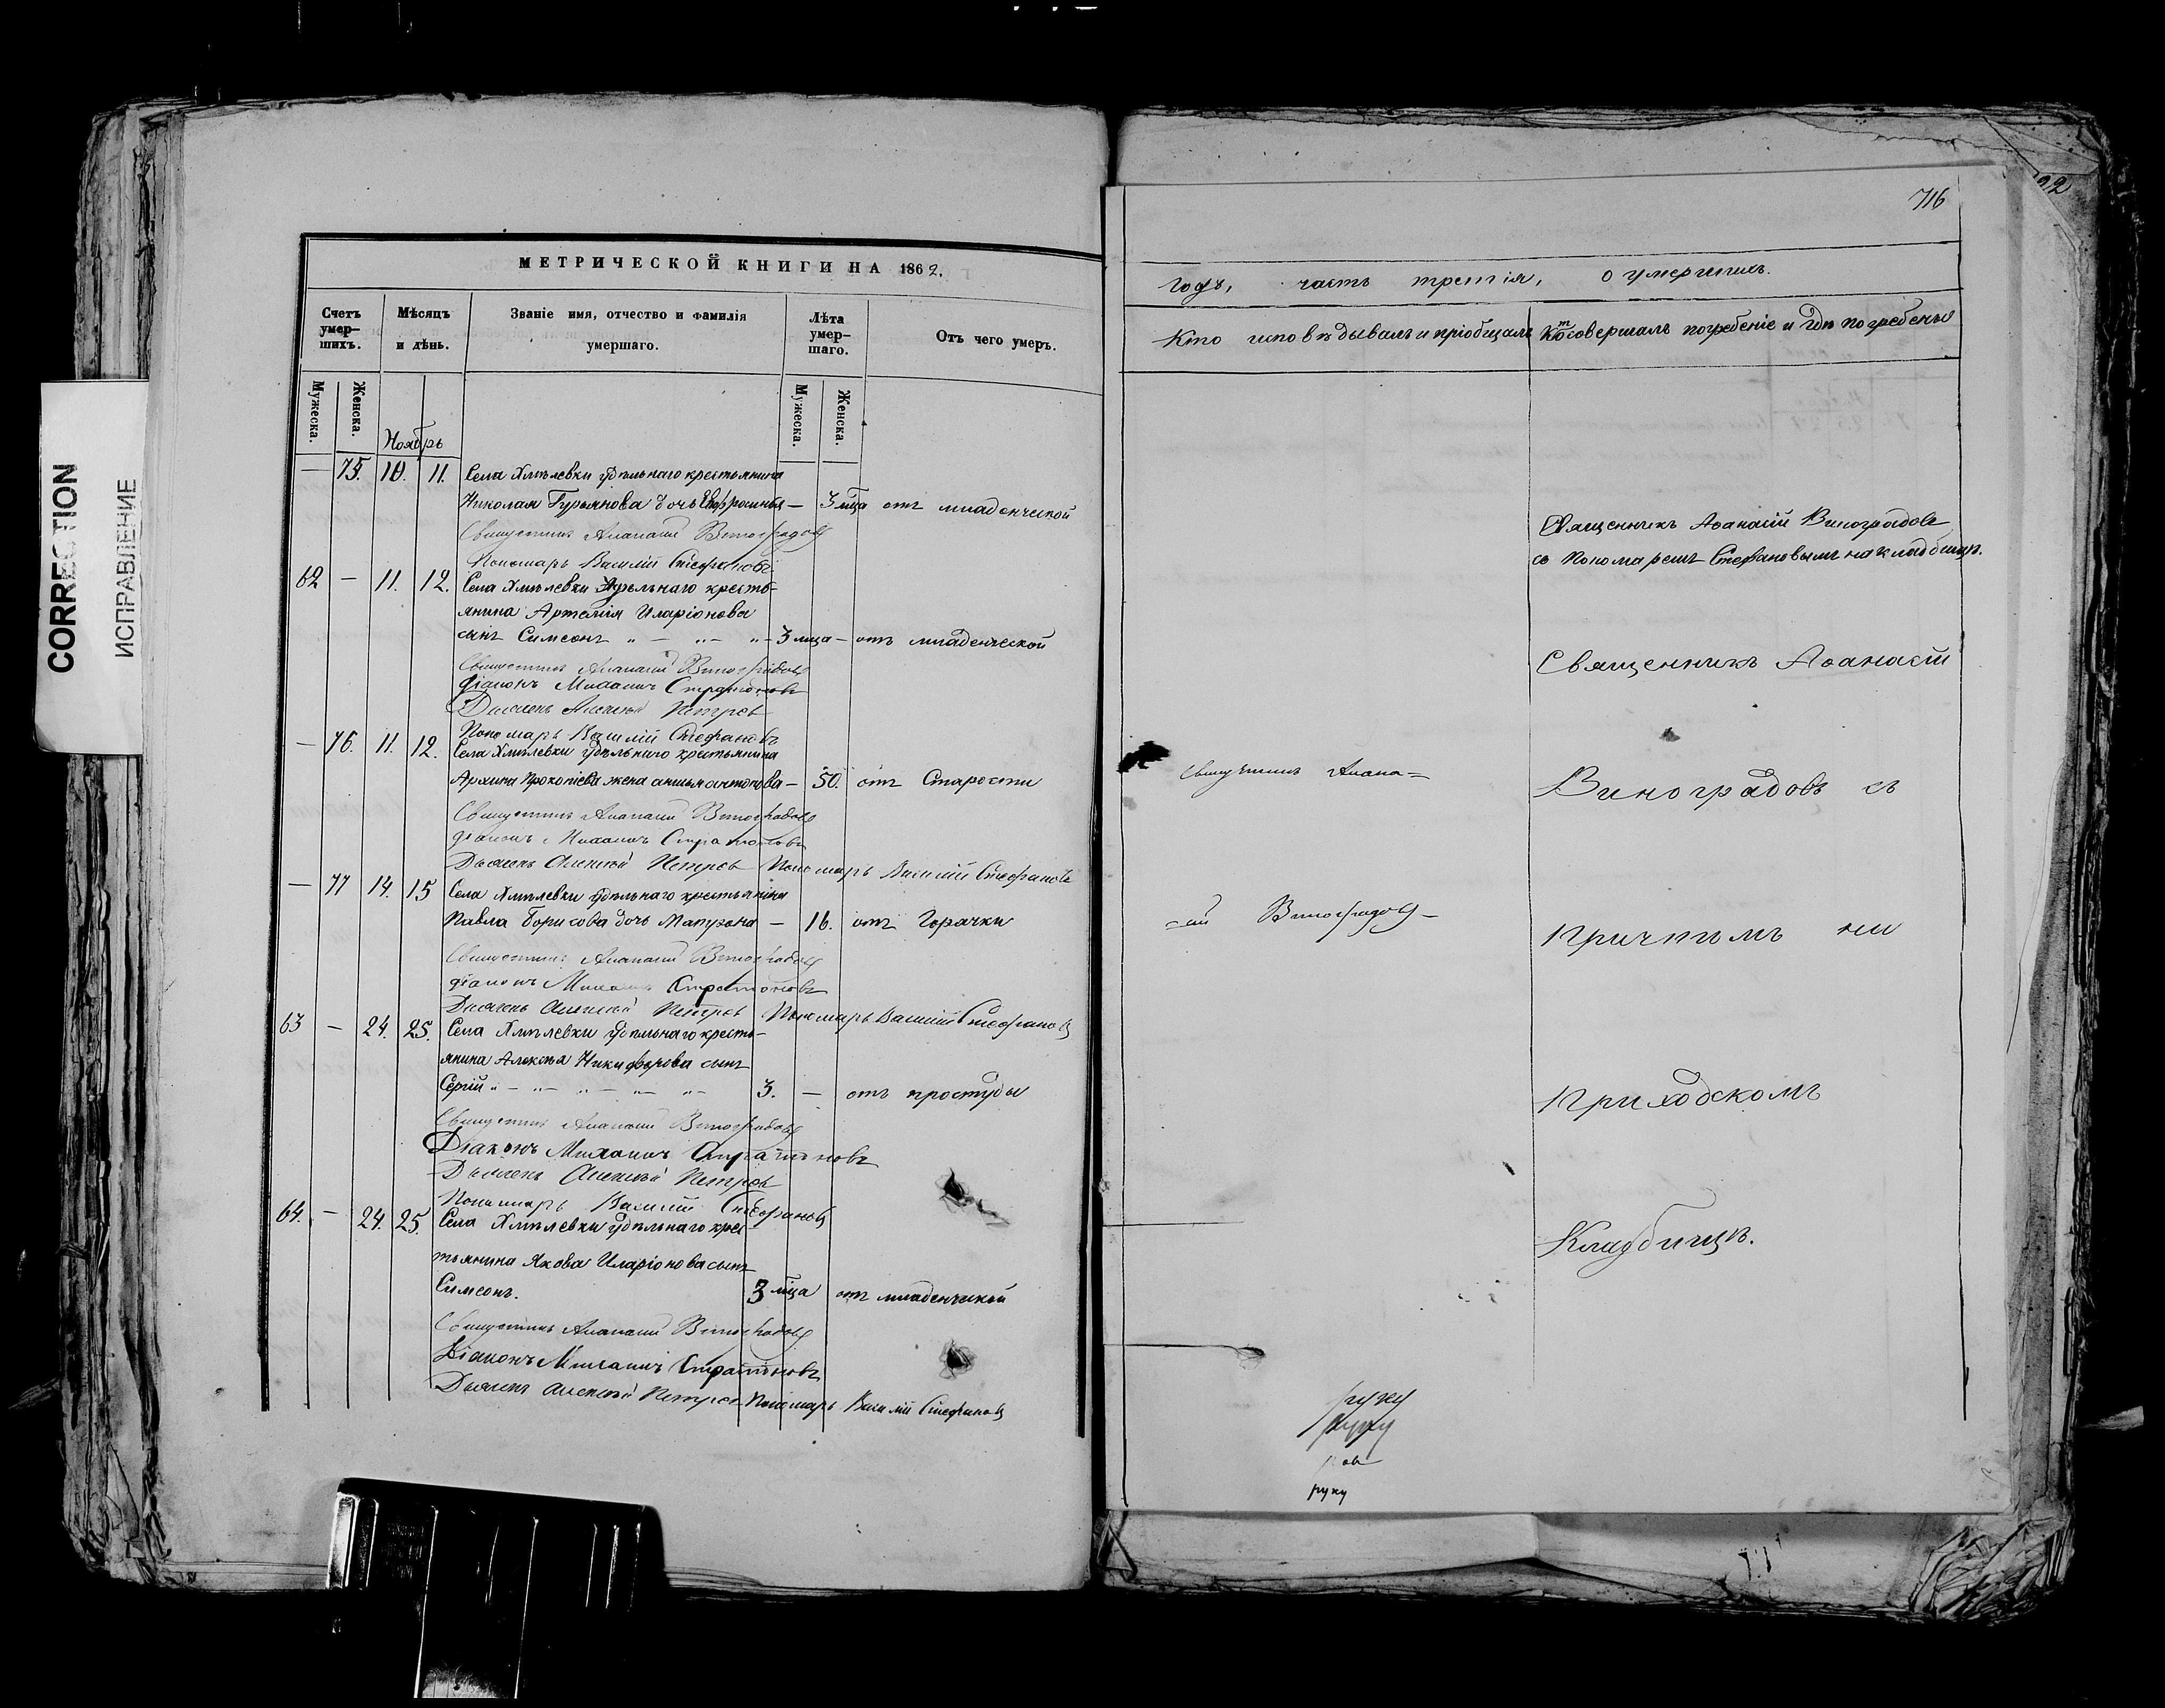 CORRECTION
ИСПРАВЛЕНИЕ
МЕТРИЧЕСКОЙ КНИГИ НА 1862.
Счетъ умер-шихъ.
Мѣсяцъ и дѣнь.
Званіе имя, отчество и фамилія умершаго.
Лѣта умер-шаго.
Отъ чего умеръ.
Мужеска.
Женска.
Ноябрь
Мужеска.
Женска.
— 75. 10. 11. Села Хмѣлевки удѣльнаго крестьянина
Николая Гурьянова дочь Евфросинья — 3 мца отъ младенческой
Священникъ Аѳанасій Виноградовъ
Пономарь Василій Стефановъ
62 — 11. 12. Села Хмѣлевки Удѣльнаго кресть-
янина Артемія Иларіонова
сынъ Симеонъ „ — „ — „ — 3 мца — отъ младенческой
Священникъ Аѳанасій Виноградовъ
Діаконъ Михаилъ Стратоновъ
Дьячекъ Алексѣй Петровъ
Пономарь Василій Стефановъ
— 76. 11. 12. Села Хмѣлевки удѣльнаго крестьянина
Архипа Прокопіева жена анисья антонова — 50. отъ Старости
Священникъ Аѳанасій Виноградовъ
Діаконъ Михаилъ Стратоновъ
Дьячекъ Алексѣй Петровъ Пономарь Василій Стефановъ
— 77 14. 15 Села Хмѣлевки удѣльнаго крестьянина
Павла Борисова дочь Матрона — 16. отъ Горячки
Священникъ Аѳанасій Виноградовъ
Діаконъ Михаилъ Стратоновъ
Дьячекъ Алексѣй Петровъ Пономарь Василій Стефановъ
63 — 24. 25. Села Хмѣлевки удѣльнаго кресть-
янина Алексѣя Никифорова сынъ
Сергій „ — „ — „ — „ — „ — 3. — отъ простуды
Священникъ Аѳанасій Виноградовъ
Діаконъ Михаилъ Стратоновъ
Дьячекъ Алексѣй Петровъ
Пономарь Василій Стефановъ
64. — 24. 25. Села Хмѣлевки удѣльнаго крес-
тьянина Якова Иларіонова сынъ
Симеонъ. 3 мца отъ младенческой
Священникъ Аѳанасій Виноградовъ
Діаконъ Михаилъ Стратоновъ
Дьячекъ Алексѣй Петровъ Пономарь Василій Стефановъ
716
годъ, часть третія, о умершихъ.
Кто исповѣдывалъ и пріобщалъ
Кто совершалъ погребеніе и гдѣ погребены
Священникъ Аѳанасій Виноградовъ
съ Пономаремъ Стефановымъ на кладбищѣ.
Священникъ Аѳанасій
Священникъ Аѳана=
Виноградовъ съ
=сій Виноградовъ
Причтомъ на
Приходскомъ
Кладбищѣ.
руку
руку
руку